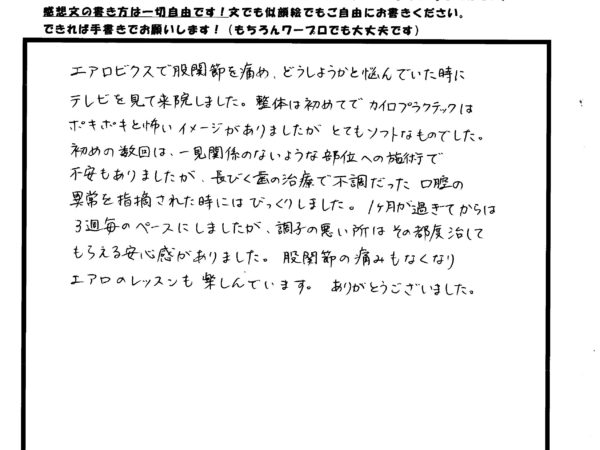 感想文の書き方は一切自由です！文でも似顔絵でもご自由にお書きください。
できれば手書きでお願いします！（もちろんワープロでも大丈夫です）
エアロビクスで股関節を痛め、どうしようかと悩んでいた時に
テレビを見て来院しました。整体は初めてで カイロプラクテックは
ボキボキと怖いイメージがありましたが とてもソフトなものでした。
初めの数回は、一見関係のないような部位への施術で
不安もありましたが、長びく歯の治療で不調だった 口腔の
異常を指摘された時にはびっくりしました。1ヶ月が過ぎてからは
3週毎のペースにしましたが、調子の悪い所は その都度治して
もらえる安心感がありました。股関節の痛みもなくなり
エアロのレッスンも 楽しんでいます。 ありがとうございました。